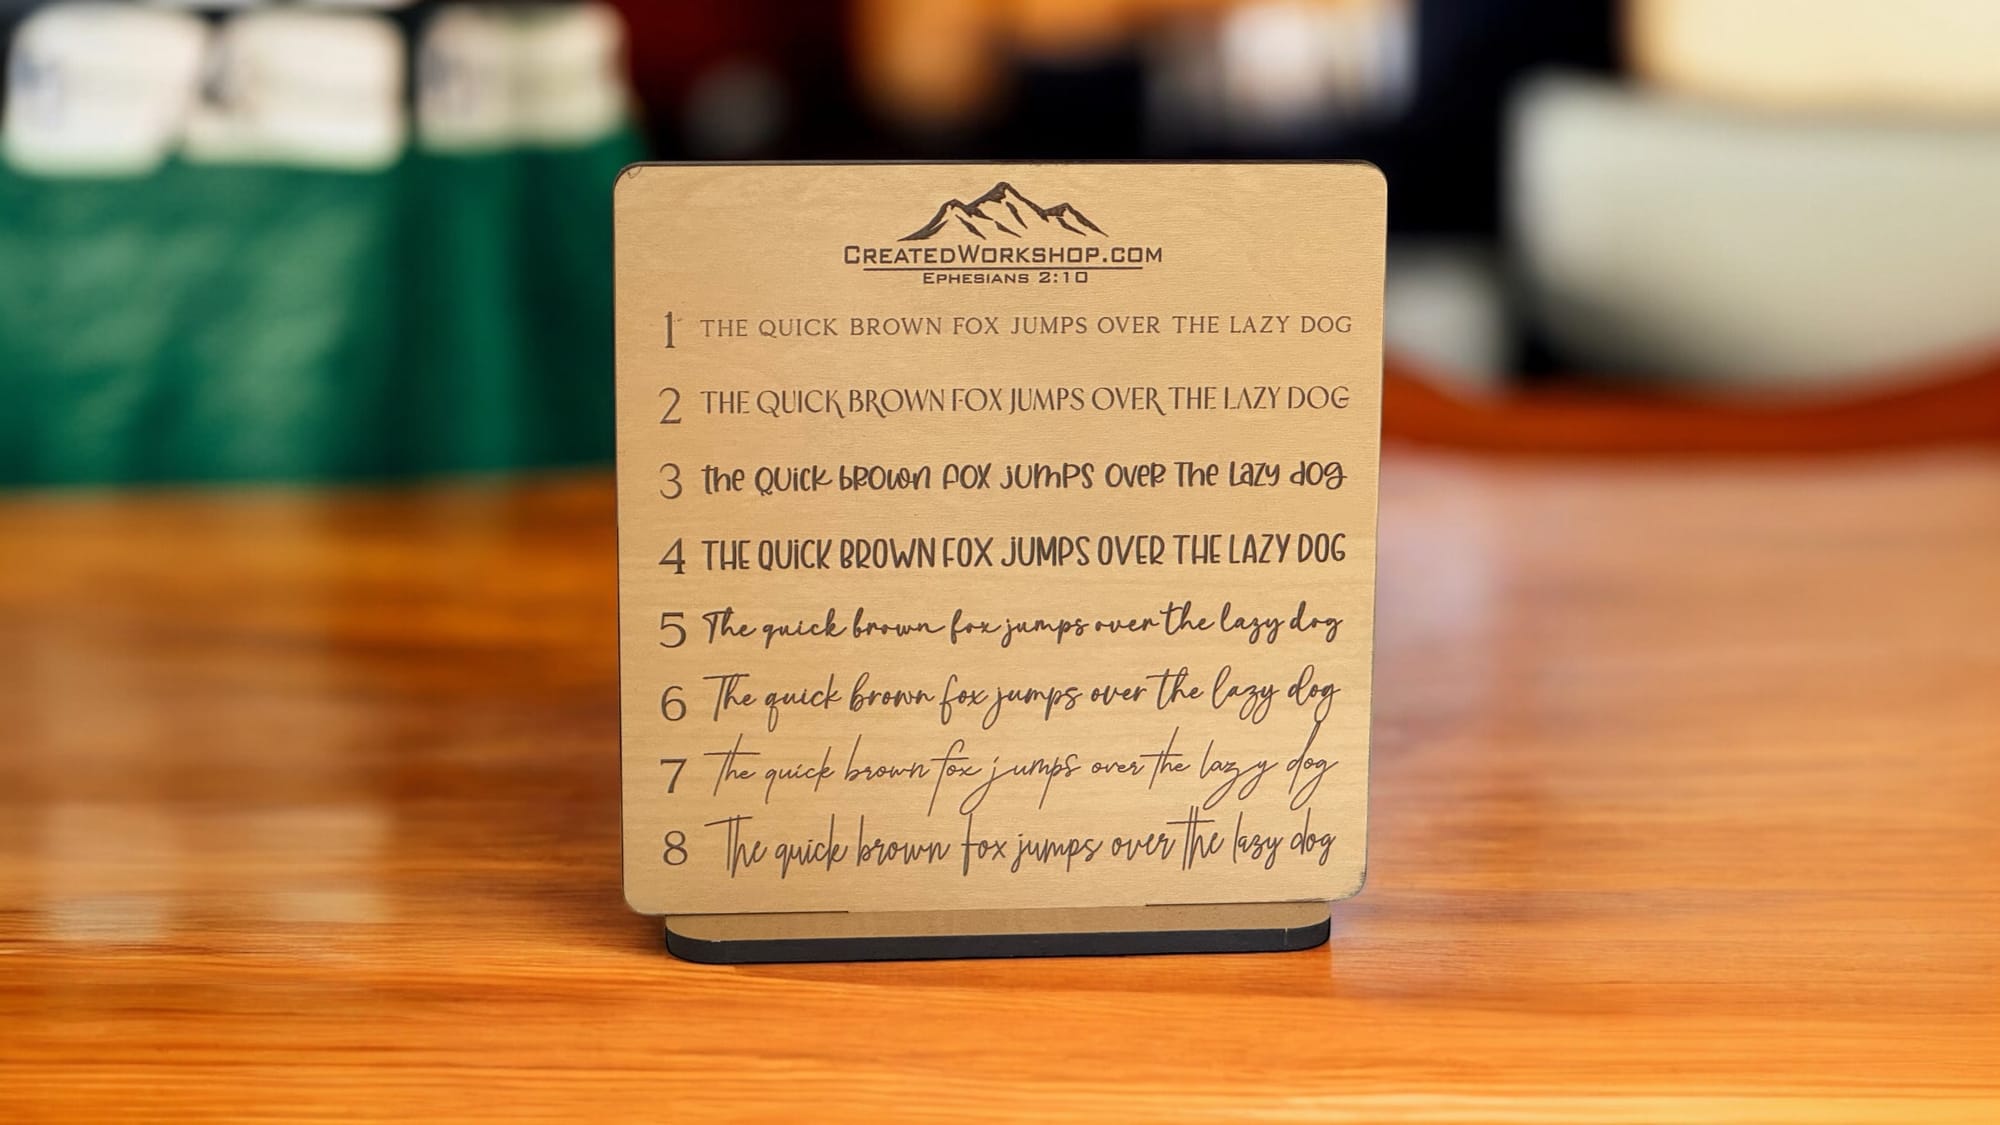 CREATEDWORKSHOP.COM
EPHESIANS 2:10
1 THE QUICK BROWN FOX JUMPS OVER THE LAZY DOG
2 THE QUICK BROWN FOX JUMPS OVER THE LAZY DOG
3 the QUick bROwn fOX JUmPS OveR The Lazy dOg
4 THE QUiCK BROWN FOX JUMPS OVER THE LAZY DOG
5 The quick brown fox jumps over the lazy dog
6 The quick brown fox jumps over the lazy dog
7 The quick brown fox jumps over the lazy dog
8 The quick brown fox jumps over the lazy dog